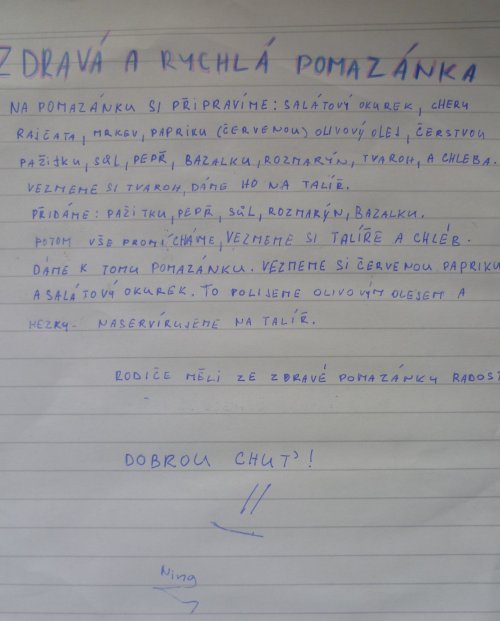 ZDRAVÁ A RYCHLÁ POMAZÁNKA
NA POMAZÁNKU SI PŘIPRAVÍME: SALÁTOVÝ OKUREK, CHERY
RAJČATA, MRKEV, PAPRIKU (ČERVENOU) OLIVOVÝ OLEJ, ČERSTVOU
PAŽITKU, SŮL, PEPŘ, BAZALKU, ROZMARÝN, TVAROH, A CHLEBA.
VEZMEME SI TVAROH, DÁME HO NA TALÍŘ.
PŘIDÁME: PAŽITKU, PEPŘ, SŮL, ROZMARÝN, BAZALKU.
POTOM VŠE PROMÍCHÁME, VEZMEME SI TALÍŘE A CHLÉB.
DÁME K TOMU POMAZÁNKU. VEZMEME SI ČERVENOU PAPRIKU
A SALÁTOVÝ OKUREK. TO POLIJEME OLIVOVÝM OLEJEM A
HEZKY NASERVÍRUJEME NA TALÍŘ.
RODIČE MĚLI ZE ZDRAVÉ POMAZÁNKY RADOST
DOBROU CHUŤ!
Ning